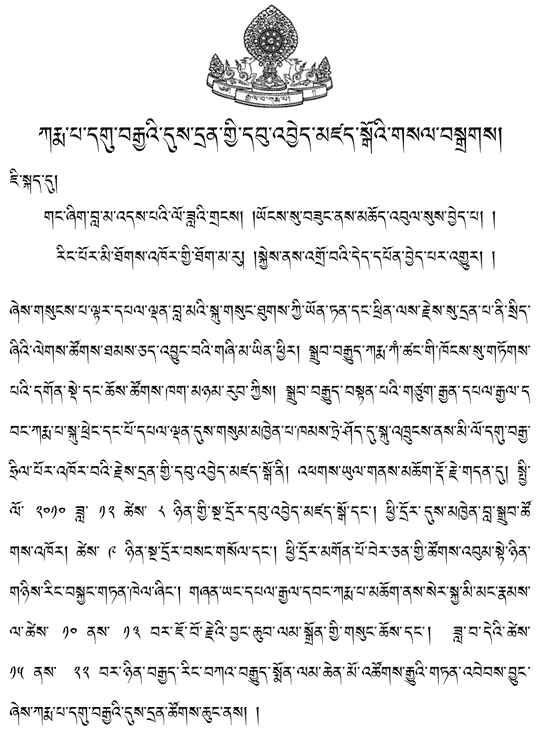 རྒྱལ་བ་ཀརྨ་པ།
ཀརྨ་པ་དགུ་བརྒྱའི་དུས་དྲན་གྱི་དབུ་འབྱེད་མཛད་སྒོའི་གསལ་བསྒྲགས།
ཇི་སྐད་དུ།
གང་ཞིག་བླ་མ་འདས་པའི་ལོ་ཟླའི་གྲངས། །ཡོངས་སུ་བཟུང་ནས་མཆོད་འབུལ་སུས་བྱེད་པ། །
རིང་པོར་མི་ཐོགས་འཁོར་གྱི་ཐོག་མ་རུ། །སྐྱེས་ནས་འགྲོ་བའི་དེད་དཔོན་བྱེད་པར་འགྱུར། །
ཞེས་གསུངས་པ་ལྟར་དཔལ་ལྡན་བླ་མའི་སྐུ་གསུང་ཐུགས་ཀྱི་ཡོན་ཏན་དང་ཕྲིན་ལས་རྗེས་སུ་དྲན་པ་ནི་སྲིད་
ཞིའི་ལེགས་ཚོགས་ཐམས་ཅད་འབྱུང་བའི་གཞི་མ་ཡིན་ཕྱིར། སྒྲུབ་བརྒྱུད་ཀརྨ་ཀཾ་ཚང་གི་ཁོངས་སུ་གཏོགས་
པའི་དགོན་སྡེ་དང་ཆོས་ཚོགས་ཁག་མཉམ་རུབ་ཀྱིས། སྒྲུབ་བརྒྱུད་བསྟན་པའི་གཙུག་རྒྱན་དཔལ་རྒྱལ་ད
བང་ཀརྨ་པ་སྐུ་ཕྲེང་དང་པོ་དཔལ་ལྡན་དུས་གསུམ་མཁྱེན་པ་ཁམས་ཏྲེ་ཤོད་དུ་སྐུ་འཁྲུངས་ནས་མི་ལོ་དགུ་བརྒྱ་
ཧྲིལ་པོར་འཁོར་བའི་རྗེས་དྲན་གྱི་དབུ་འབྱེད་མཛད་སྒོ་ནི། འཕགས་ཡུལ་གནས་མཆོག་རྡོ་རྗེ་གདན་དུ། སྤྱི་
ལོ་ ༢༠༡༠ ཟླ་ ༡༢ ཚེས་ ༨ ཉིན་གྱི་སྔ་དྲོར་དབུ་འབྱེད་མཛད་སྒོ་དང་། ཕྱི་དྲོར་དུས་མཁྱེན་བླ་སྒྲུབ་ཚོ
གས་འཁོར། ཚེས་ ༩ ཉིན་སྔ་དྲོར་བསང་གསོལ་དང་། ཕྱི་དྲོར་མགོན་པོ་བེར་ཅན་གྱི་ཚོགས་འབུམ་སྟེ་ཉིན་
གཉིས་རིང་བསྐྱང་གཏན་ཁེལ་ཞིང་། གཞན་ཡང་དཔལ་རྒྱལ་དབང་ཀརྨ་པ་མཆོག་ནས་སེར་སྐྱ་མི་མང་རྣམས་
ལ་ཚེས་ ༡༠ ནས་ ༡༣ བར་ཇོ་བོ་རྗེའི་བྱང་ཆུབ་ལམ་སྒྲོན་གྱི་གསུང་ཆོས་དང་། ཟླ་བ་དེའི་ཚེས་
༡༥ ནས་ ༢༢ བར་ཉིན་བརྒྱད་རིང་བཀའ་བརྒྱུད་སྨོན་ལམ་ཆེན་མོ་འཚོགས་རྒྱུའི་གཏན་འབེབས་བྱུང་
ཞེས་ཀརྨ་པ་དགུ་བརྒྱའི་དུས་དྲན་ཚོགས་ཆུང་ནས། །